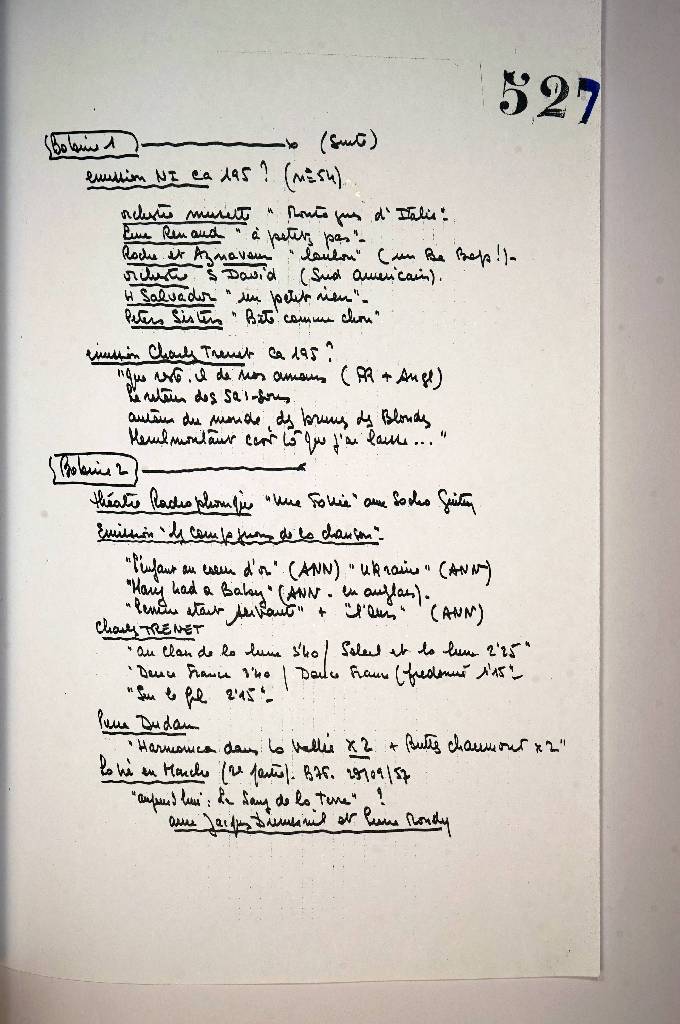 527
Bobine 1 (Suite)
emission NI ca 195 ? (n=54)
orchestre musette " Montagnes d'Italie"
Line Renaud " à petits pas"
Roche et Aznavour (un Be Bop !)
orchestre S David (Sud americain).
H Salvador " un petit rien"
Peters Sisters " Bête comme chou"
emission Charles Trenet ca 195 ?
"Que reste-il de nos amours ( FR + Angl)
Le retour des Saisons
autour du monde des blondes
Menilmontant c'est là que j'ai laissé ... "
Bobine 2
théatre Radiophonique "Une Folie" avec Sacha Guitry
Emission "les compagnons de la chanson"
"l'enfant au coeur d'or" (ANN) "Ukraine" (ANN)
"Mary had a Baby" (ANN - en anglais).
"Perrine etait servante" + "l'ours" (ANN)
Charles TRENET
"au Clair de la lune 3'40 / Soleil et la lune 2'25"
"Douce France 3'40 / Douce France (fredonné 1'15"
"Sur le fil 2'15"
Pierre Dudan
"Harmonica dans la Vallée x2 + Buttes chaumont x2"
La vie en Marche (2e partie). 28/09/57
"aujourd'hui : Le Sang de la Terre" ?
avec Jacques Dumesnil et Pierre Mondy